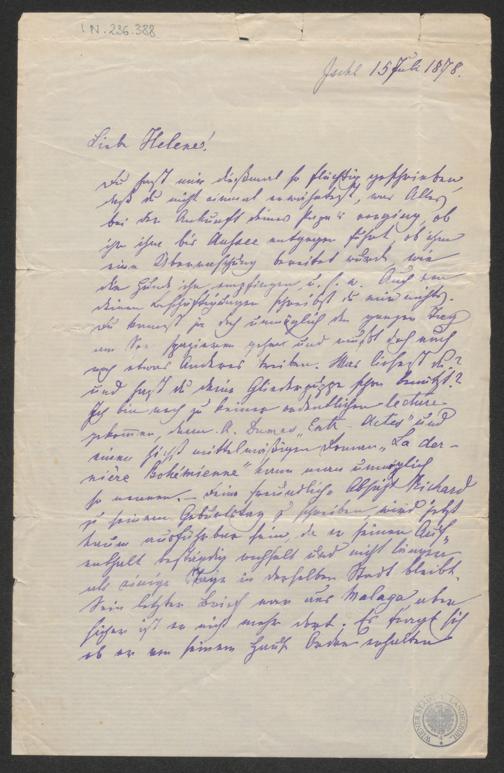 I.N. 236.388
Ischl 15 Juli 1878.
Liebe Helene!
Du hast mir dießmal so flüchtig geschrieben,
daß du nicht einmal erwähntest, was Alles
bei der Ankunft deines Papa's vorging, ob
ihr ihm bis Aussee entgegen fuhrt, ob ihm
eine Überraschung bereitet wurde, wie
die Hunde ihn empfingen, u. s. w. Auch von
deinen Beschäftigungen schreibst du mir nichts.
Du kannst ja doch unmöglich den ganzen Tag
am See spazieren gehen und mußt doch auch
noch etwas Anderes treiben. Was liest du?
und hast du deine Gliederpuppe schon benützt?
Ich bin noch zu keiner ordentlichen lecture
gekommen, denn A. Dumas „ Actes" und
einen höchst mittelmäßigen Roman „La der-
nière Bohémienne" kann man unmöglich
so nennen. – Deine freundliche Absicht Richard
zu seinem Geburtstag zu schreiben, wird jetzt
kaum ausführbar sein, da er seinen Auf-
enthalt beständig wechselt und nicht länger
als einige Tage in derselben Stadt bleibt.
Sein letzter Brief war aus Malaga, aber
sicher ist er nicht mehr dort. Es fragt sich
ob er an seinem Orden erhalten
WIENER STADT LANDESBIBL.